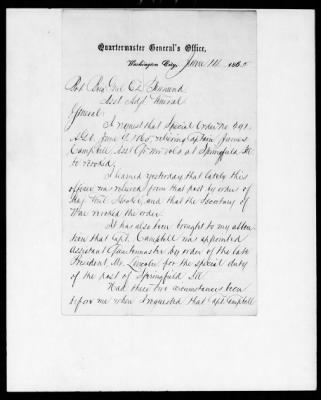 Quartermaster General's Office,
Washington City, June 14 1865
Bvt Brig Genl E D Townsend
Asst Adjt General
General:
I request that Special Order No 291
A.G.O. June 12 1865, relieving Captain James
Campbell Asst Qr Mr Vols at Springfield Ill
be revoked.
I learned yesterday that lately this
officer was relieved from that post by order of
Maj. Genl. Hooker, and that the Secretary of
War revoked the order.
It has also been brought to my atten
tion that Capt. Campbell was appointed
Assistant Quartermaster by order of the late
President, Mr. Lincoln, for the special duty
of the post of Springfield Ill
Had these two circumstances been
before me when I requested that Capt Campbell